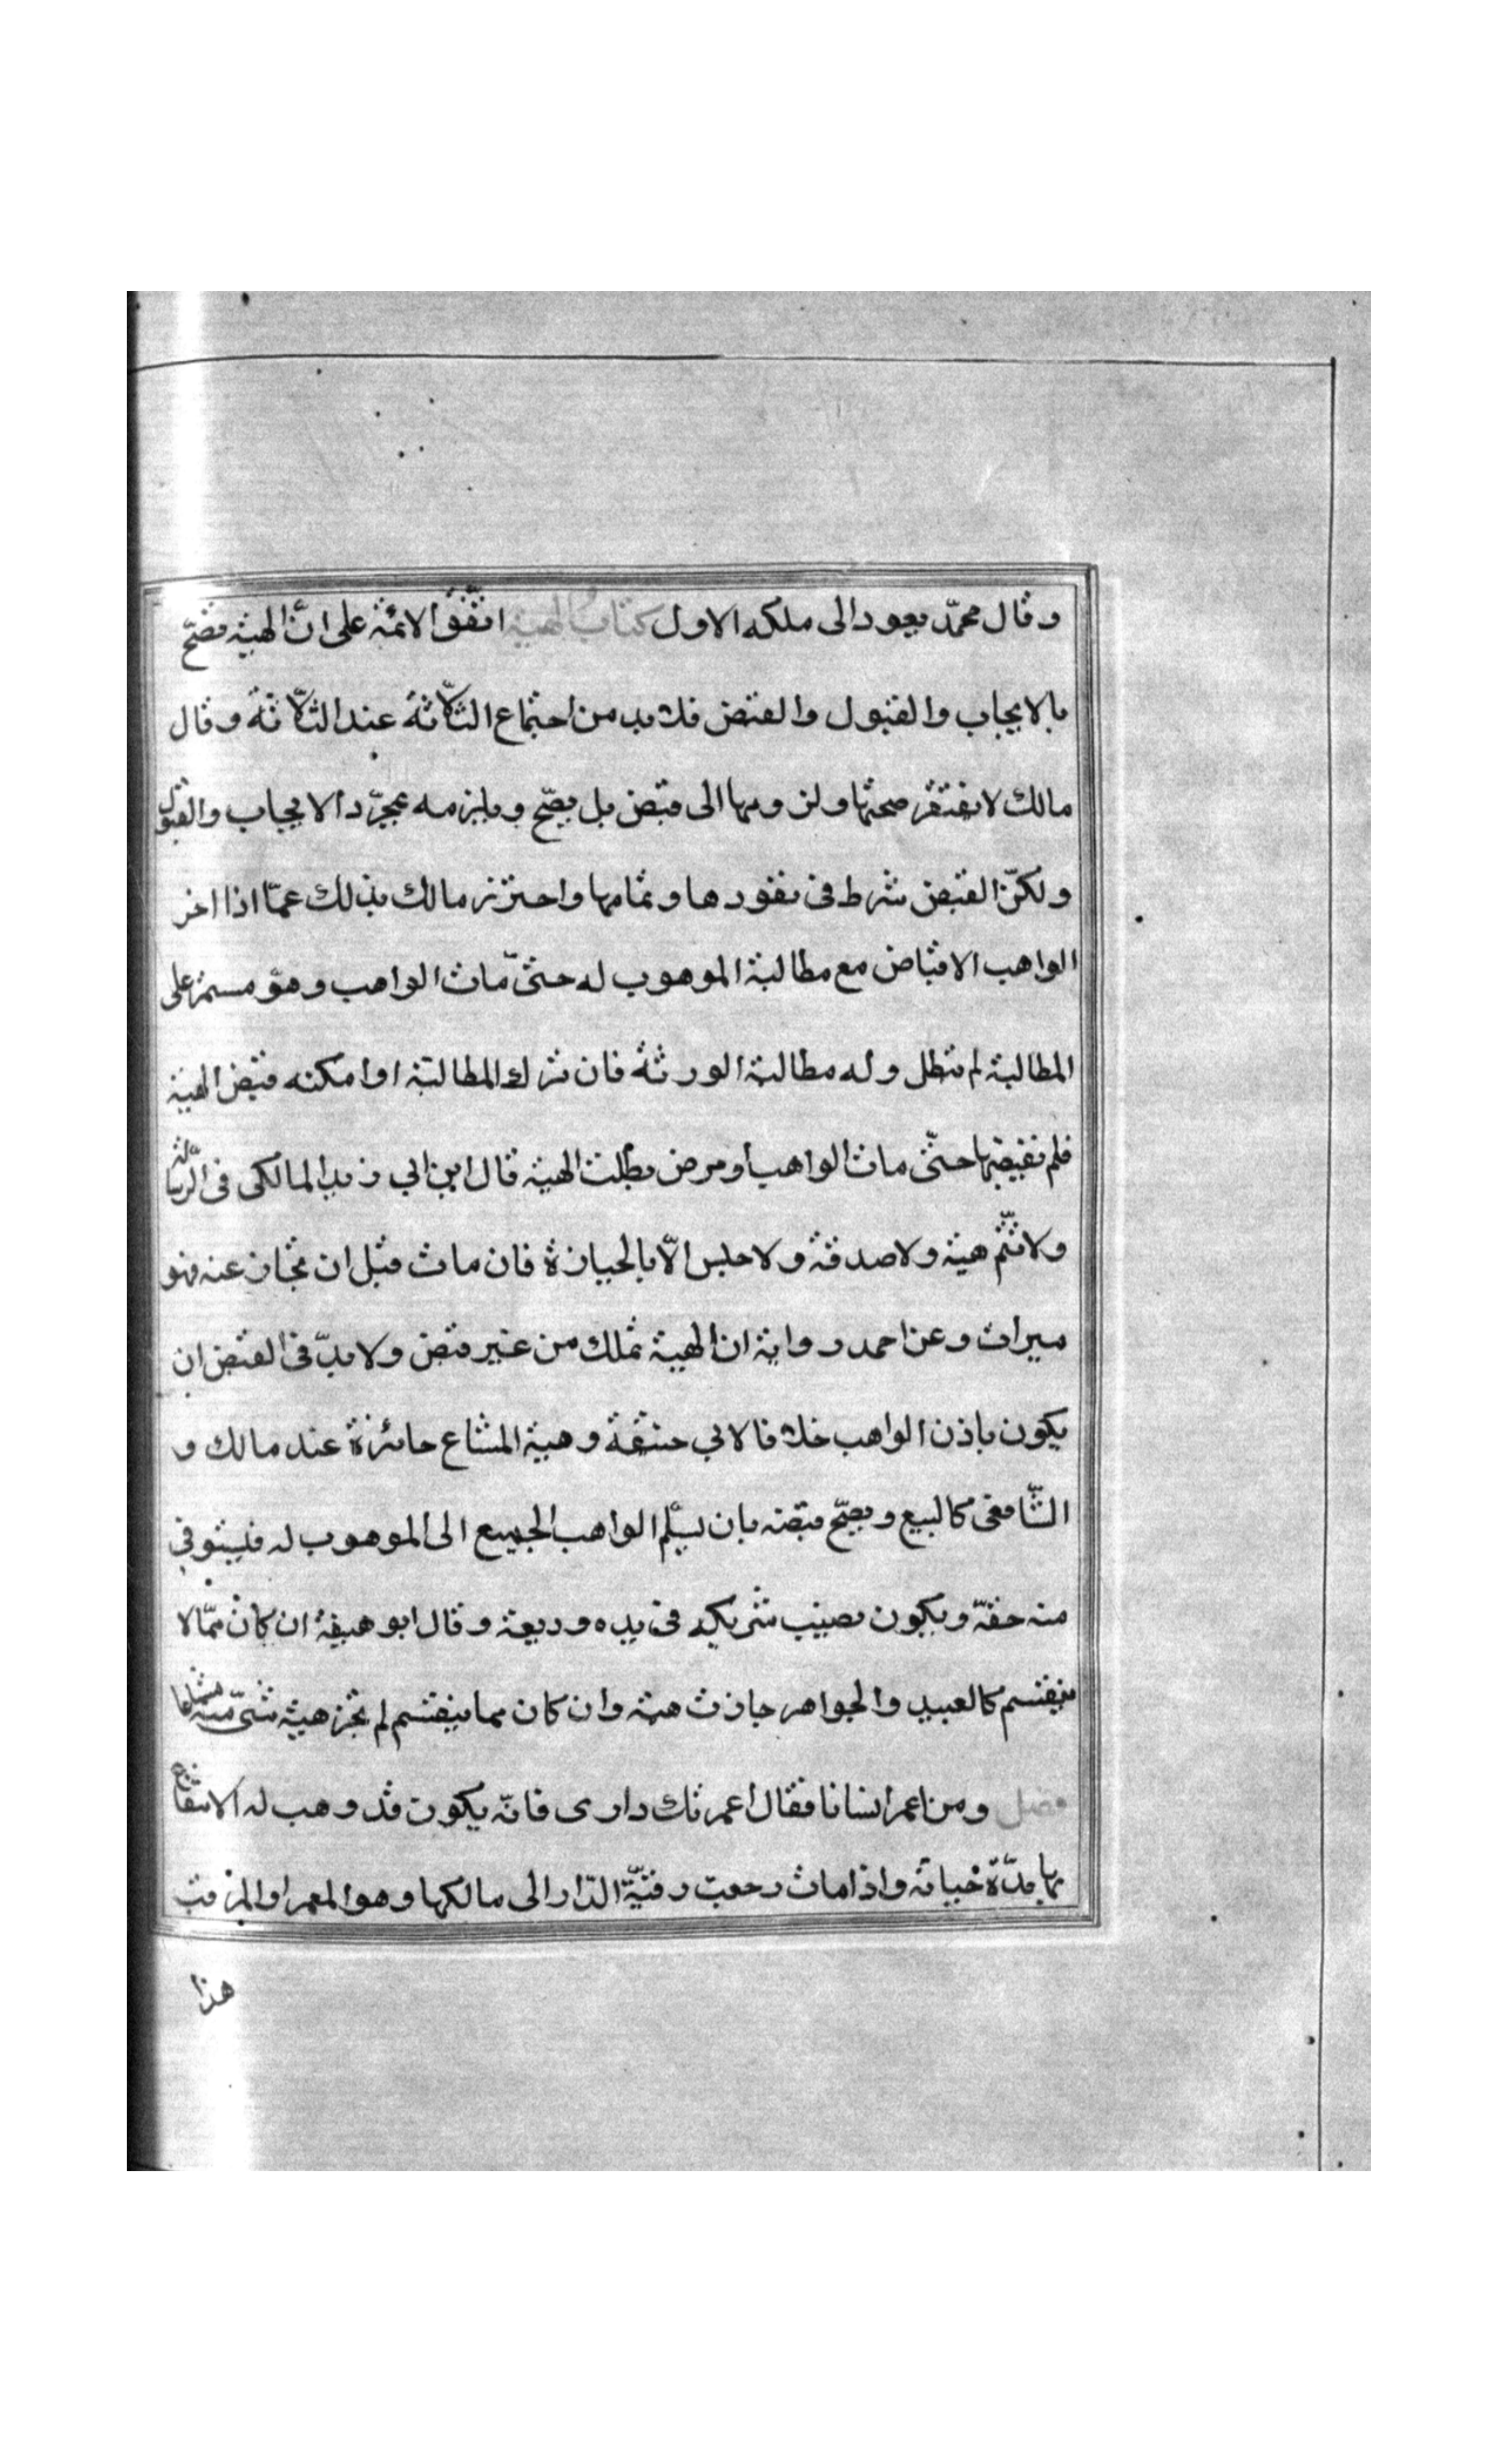 وقال محمّد يعود الى ملكه الاول كتاب الهبة اتّفق الائمّة على انّ الهبة تصحّ
بالايجاب والقبول والقبض فلا بد من اجتماع الثّلاثة عند الثّلاثة وقال
مالك لا يفتقر صحتها ولزومها الى قبض بل يصحّ ويلزمه بمجرّد الايجاب والقبول
ولكنّ القبض شرط فى نفوذها وتمامها واحترز مالك بذلك عمّا اذا اخر
الواهب الاقباض مع مطالبة الموهوب له حتىّ مات الواهب وهو مستمر على
المطالبة لم تبطل وله مطالبة الورثة فان ترك المطالبة او امكنه قبض الهبة
فلم يقبضها حتّى مات الواهب او مرض بطلت الهبة قال ابن ابي زيد المالكى فى الرّسالة
ولا تتّم هبة ولا صدقة ولا حبس الاّ بالحيازة فان مات قبل ان تحاز عنه فهو
ميراث وعن احمد رواية ان الهبة تملك من غير قبض ولا بدّ فى القبض ان
يكون باذن الواهب خلافا لابي حنيفة وهبة المشاع جائزة عند مالك و
الشّافعى كالبيع ويصحّ قبضه بان يسلّم الواهب الجميع الى الموهوب له فليستوفي
منه حقّه ويكون نصيب شريكه فى يده وديعة وقال ابو هنيفة ان كان ممّا لا
ينقسم كالعبيد والجواهر جازت هبته وان كان مما ينقسم لم تجز هبة شىّ منه مشاعا
فصل ومن اعمر انسانا فقال اعمرتك دارى فانّه يكون قد وهب له الانتفاع
بها مدّة حياته واذا مات رجعت رقبّة الدّار الى مالكها وهو المعمر او المرقب
هذا